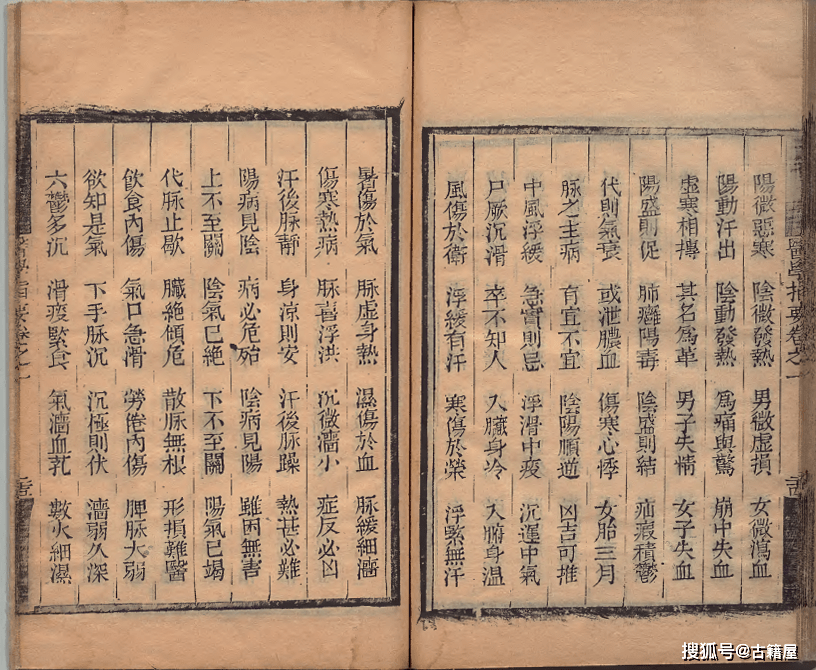 陽微惡寒 陰微發熱 男微虛損 女微瀉血
陽動汗出 陰動發熱 為痛與驚 崩中失血
虛寒相摶 其名為革 男子失情 女子失血
陽盛則促 肺癰陽毒 陰盛則結 疝瘕積鬱
代則氣衰 或泄膿血 傷寒心悸 女胎三月
脉之主病 有宜不宜 陰陽順逆 凶吉可推
中風浮緩 急實則忌 浮滑中痰 沉遲中氣
尸厥沉滑 卒不知人 入臟身冷 入腑身温
風傷於衛 浮緩有汗 寒傷於榮 浮緊無汗
暑傷於氣 脉虛身熱 濕傷於血 脉緩細濇
傷寒熱病 脉喜浮洪 沉微濇小 症反必凶
汗後脉靜 身涼則安 汗後脉躁 熱甚必難
陽病見陰 病必危殆 陰病見陽 雖困無害
上不至關 陰氣已絕 下不至關 陽氣已竭
代脉止歇 臟絕傾危 散脉無根 形損難醫
飲食內傷 氣口急滑 勞倦內傷 脾脉大弱
欲知是氣 下手脉沉 沉極則伏 濇弱久深
六鬱多沉 滑痰緊食 氣濇血芤 數火細濕
醫學指要卷之一
醫學指要卷之一
搜狐号@古籍屋